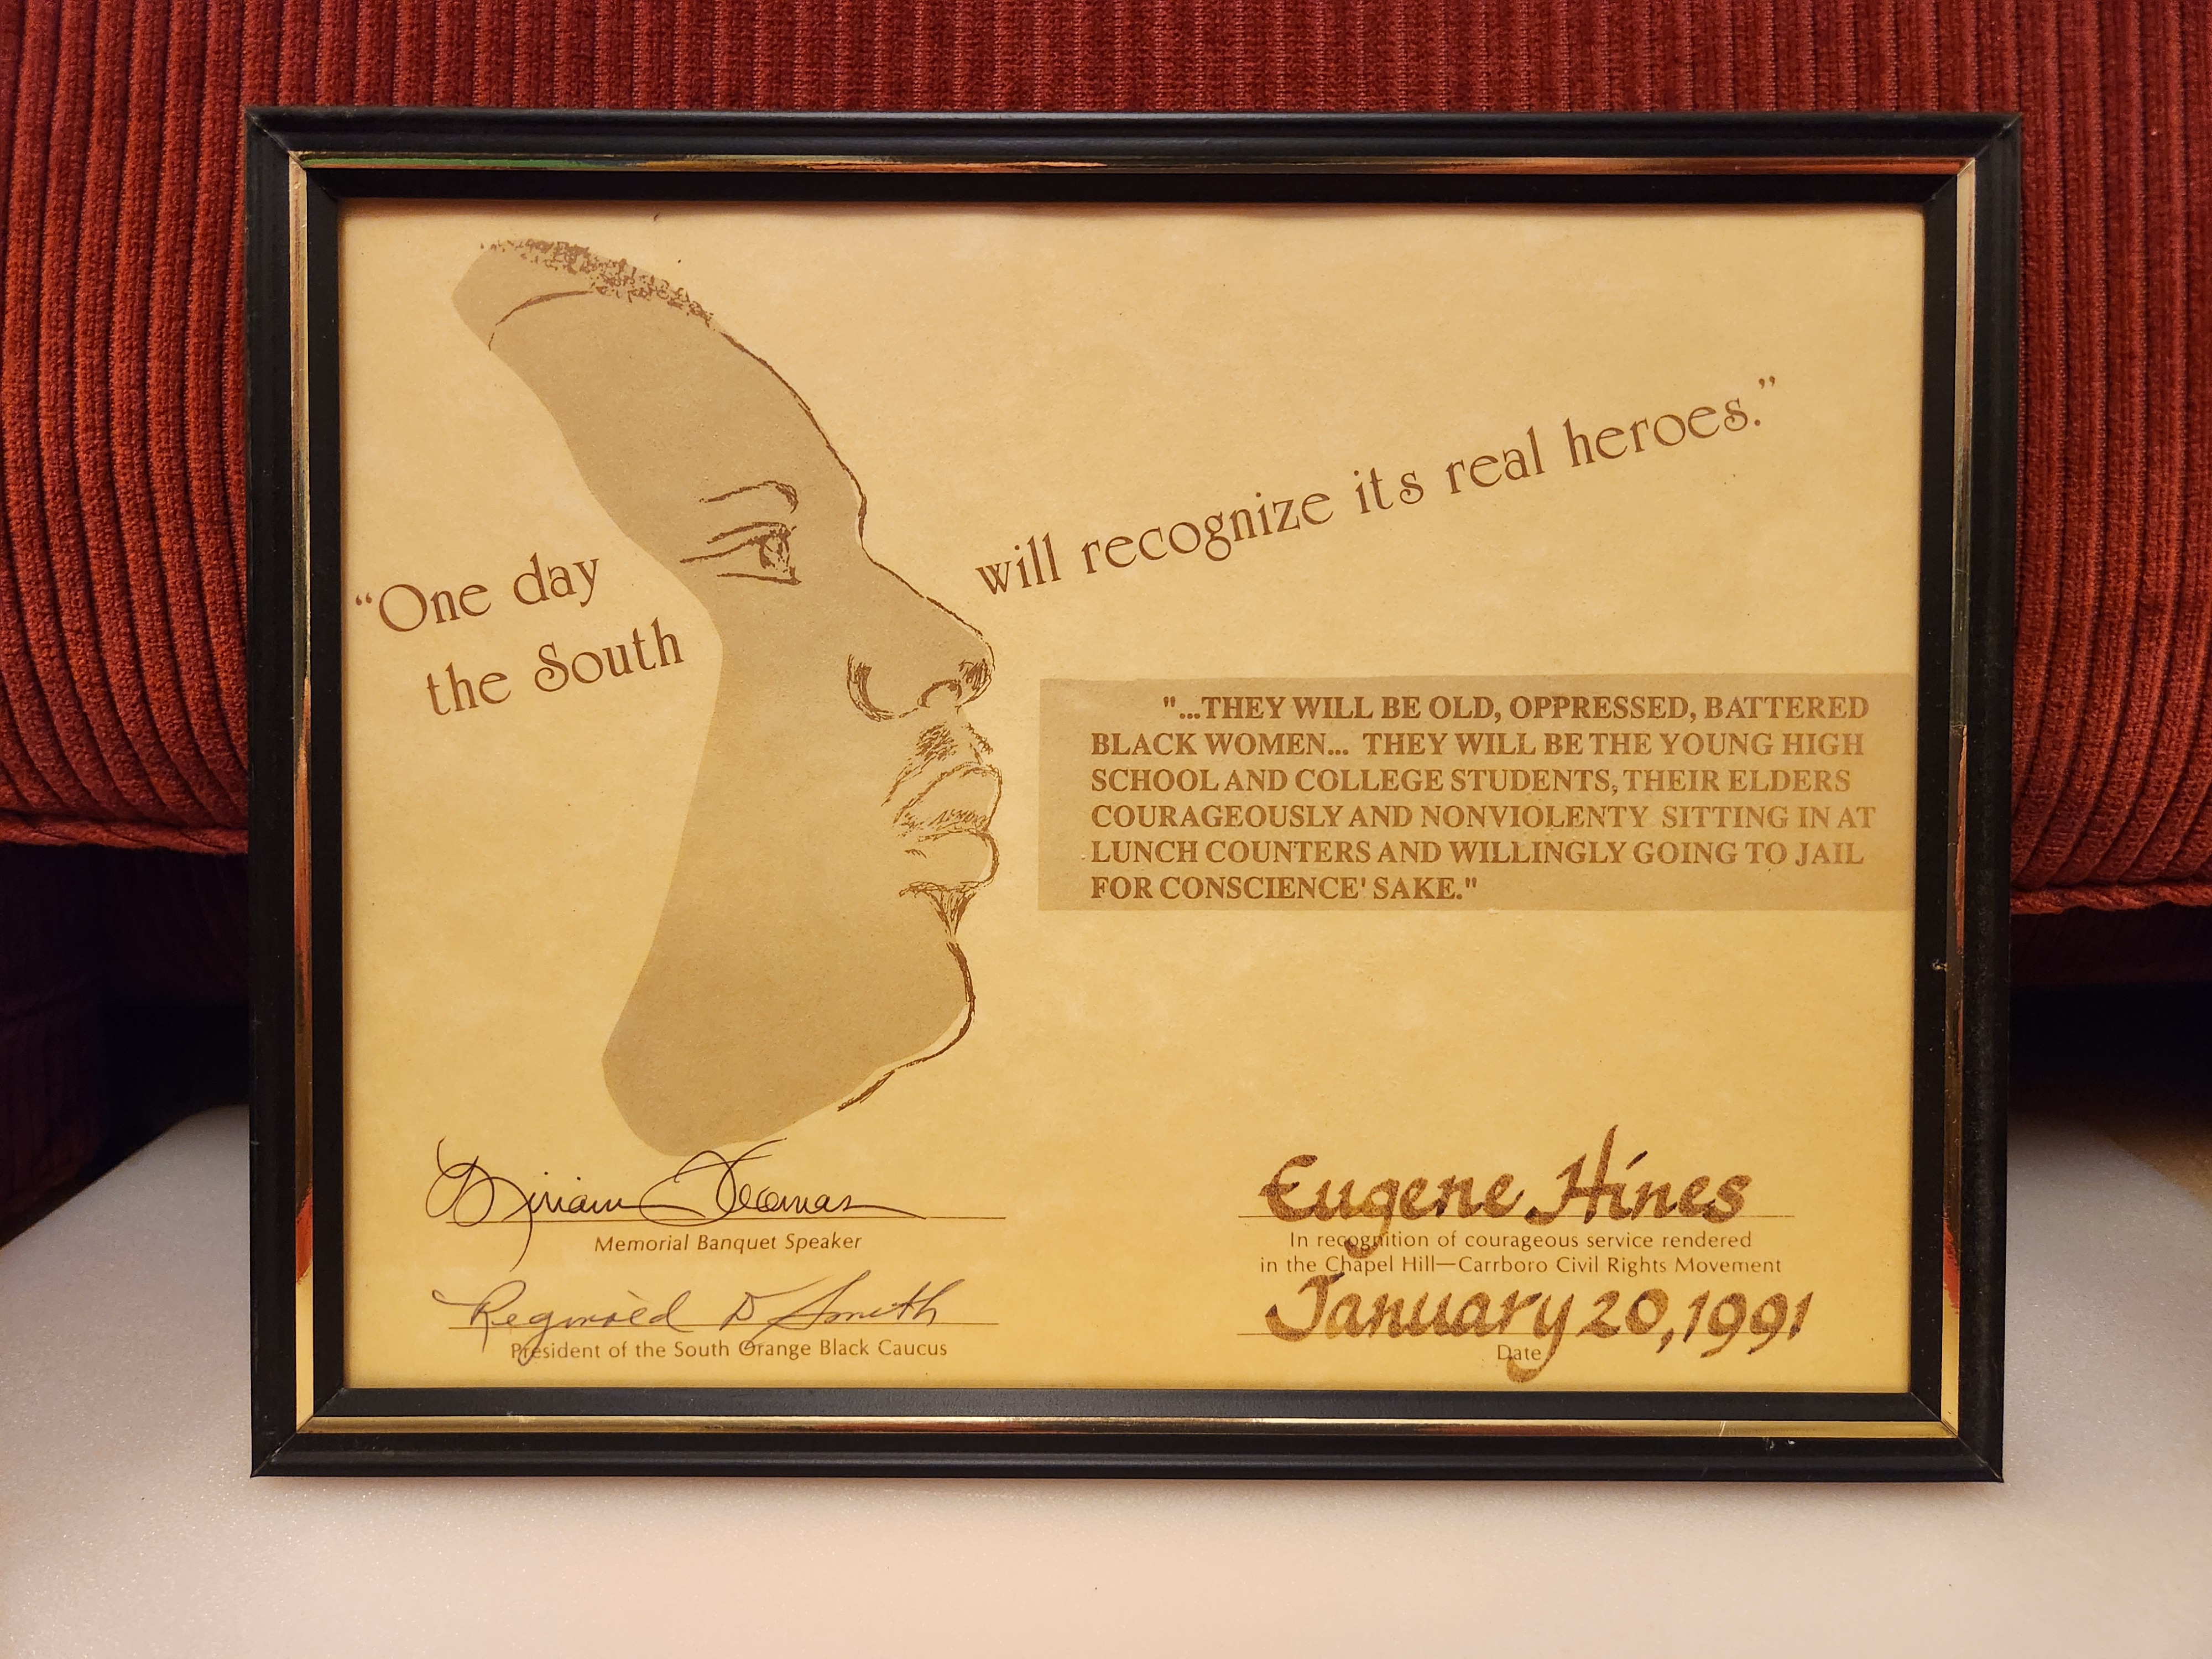 “One day
the South
will recognize its real heroes.”
"...THEY WILL BE OLD, OPPRESSED, BATTERED
BLACK WOMEN... THEY WILL BE THE YOUNG HIGH
SCHOOL AND COLLEGE STUDENTS, THEIR ELDERS
COURAGEOUSLY AND NONVIOLENTY SITTING IN AT
LUNCH COUNTERS AND WILLINGLY GOING TO JAIL
FOR CONSCIENCE' SAKE."
Miriam Thomas
Memorial Banquet Speaker
Reginald D Smith
President of the South Orange Black Caucus
Eugene Hines
In recognition of courageous service rendered
in the Chapel Hill—Carrboro Civil Rights Movement
January 20, 1991
Date